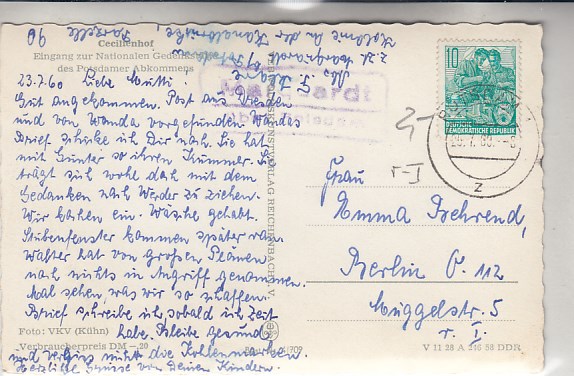 Cecilienhof
Eingang zur Nationalen Gedenkstätte
des Potsdamer Abkommens
23.7.60 Liebe Mutti!
Gut angekommen. Post aus Dresden
und von Wanda vorgefunden. Wandas
Brief schicke ich Dir nach. Sie hat
mit Günter so ihren Kummer. Sie
trägt sich wohl doch mit dem
Gedanken nach Werder zu ziehen.
Wir haben ein. Wäsche gehabt.
Stubenfenster kommen später ran.
Walter hat von großen Plänen
noch nichts in Angriff genommen.
Mal sehen, was wir so schaffen.
Brief schreibe ich, sobald ich Zeit
habe. Bleibe gesund
und vergiss nicht die Kohlenmarken.
Herzliche Grüsse von Deinen Kindern.
Foto: VKV (Kühn)
Verbraucherpreis DM -,20
REICHENBACH I. V.
Kolonie An der Kanalbrücke,
Parzelle 90
10
DEUTSCHE
DEMOKRATISCHE REPUBLIK
z
r-I
Frau
Emma Behrend,
Berlin O. 112
Müggelstr. 5
r. I.
V 11 28 A 346 58 DDR